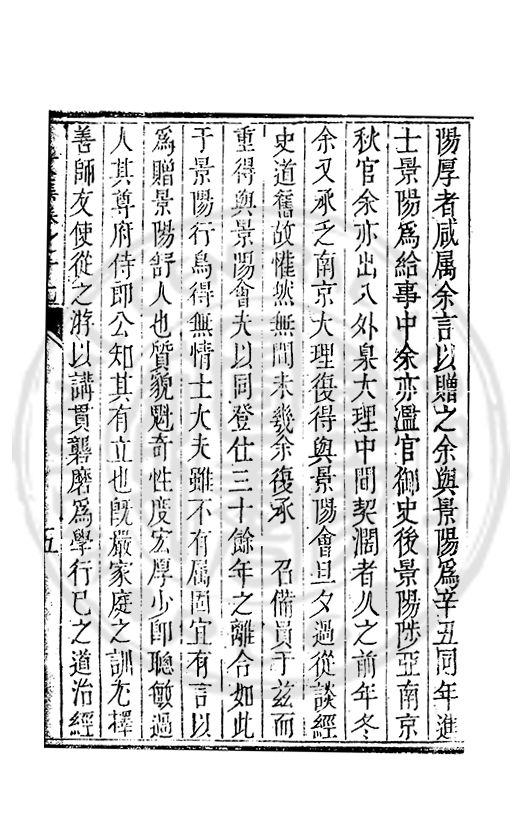 陽厚者咸属余言以贈之余與景陽為辛丑同年進
士景陽為給事中余亦濫官御史後景陽陟亞南京
秋官余亦出入外臬大理中間契濶者乆之前年冬
余又承乏南京大理復得與景陽會旦夕過從談經
史道舊故懽然無間未幾余復承　召備員于兹而
重得與景陽會夫以同登仕三十餘年之離合如此
于景陽行烏得無情士大夫雖不有属固宜有言以
為贈景陽舒人也質貌魁奇性度宏厚少即聰敏過
人其尊府侍郎公知其有立也既嚴家庭之訓尤擇
善師友使從之游以講貫礱磨為學行已之道治經
五